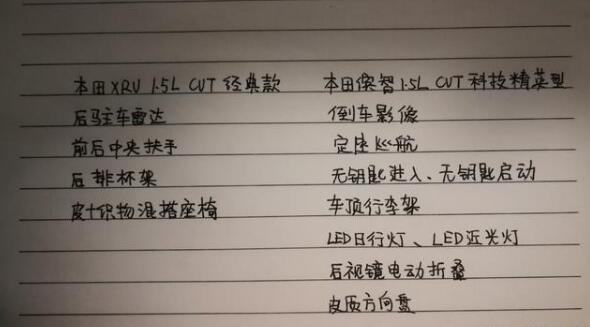 本田XRV 1.5L CVT 经典款
后驻车雷达
前后中央扶手
后排杯架
皮+织物混搭座椅
本田傧智1.5L CVT 科技精英型
倒车影像
定速巡航
无钥匙进入、无钥匙启动
车顶行李架
LED日行灯、LED近光灯
后视镜电动折叠
皮质方向盘